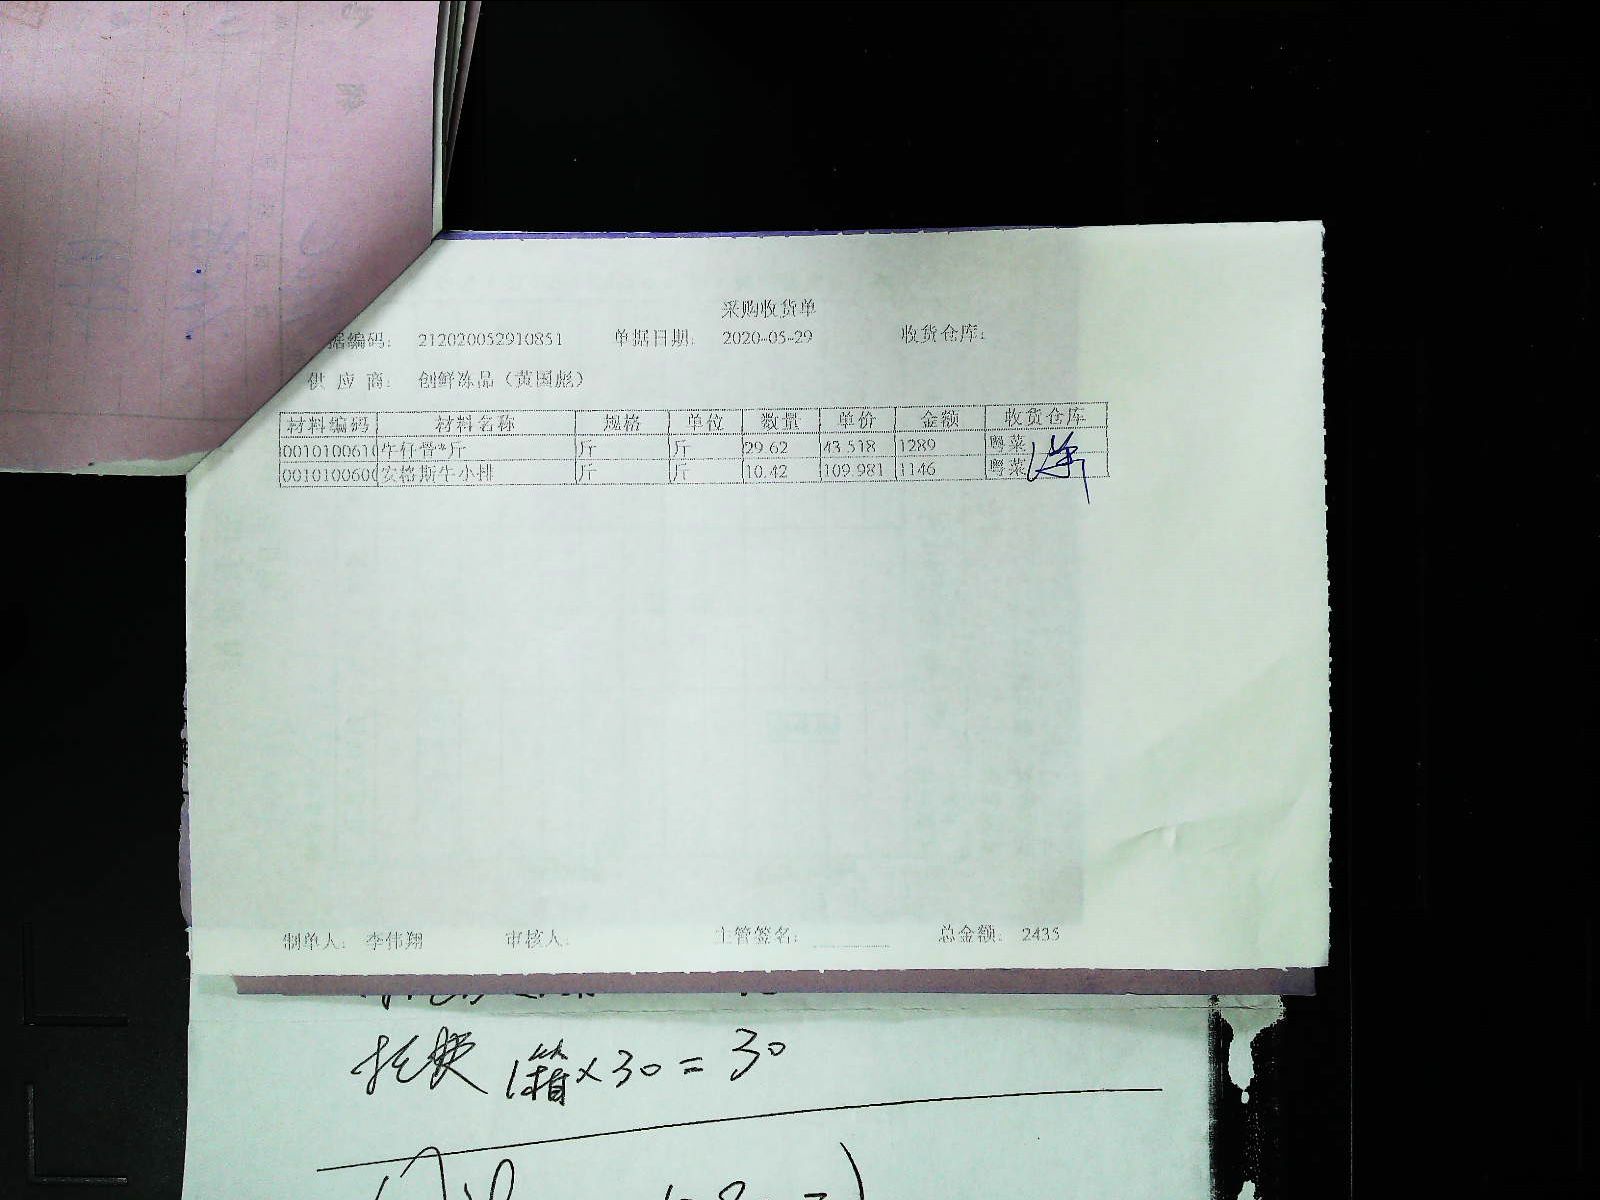 采购收货单
据编码： 212020052910851 单据日期： 2020-05-29 收货仓库：
供 应 商： 创鲜冻品（黄国彪）
材料编码 材料名称 规格 单位 数量 单价 金额 收货仓库
0010100610 牛仔骨*斤 斤 斤 29.62 43.518 1289 粤菜
0010100600 安格斯牛小排 斤 斤 10.42 109.981 1146 粤菜
制单人： 李伟翔 审核人： 主管签名： 总金额： 2435
托费 1箱×30=30